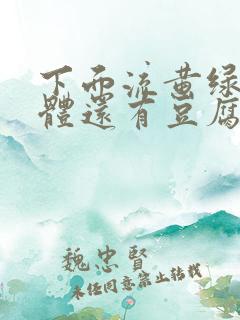 下面流黄绿
體還有豆腐
魏忠賢
未经同意禁止转载